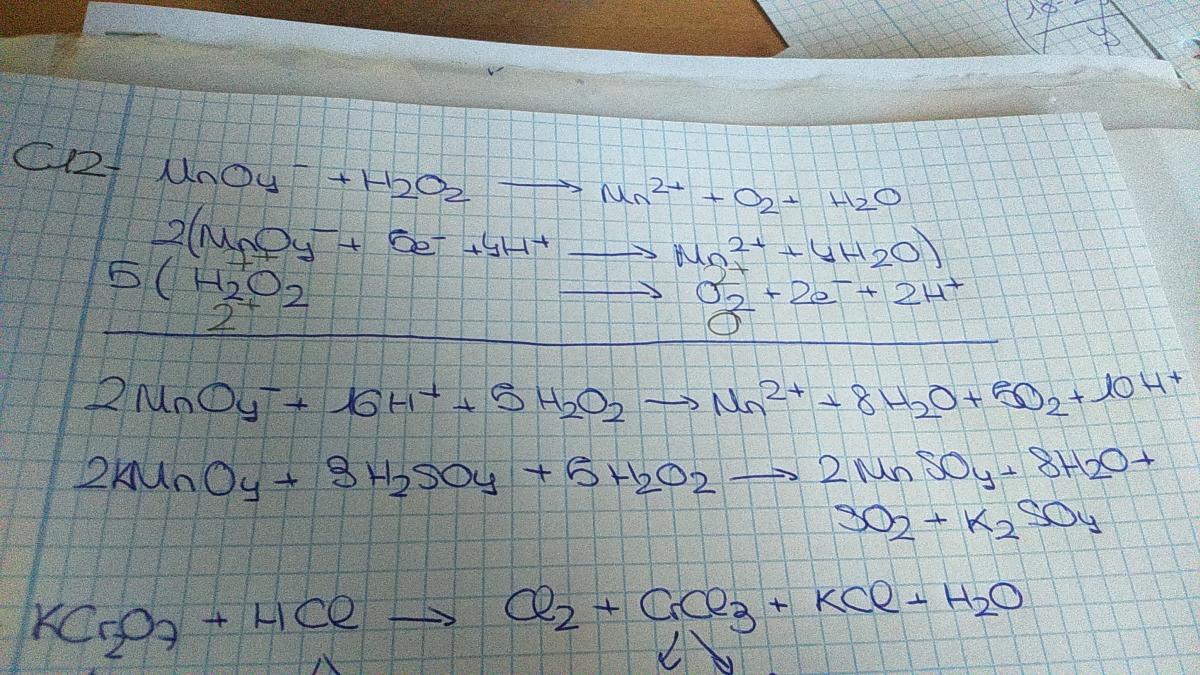 Cl2- MnO4⁻ + H2O2 → Mn²⁺ + O2 + H2O
2(MnO4⁻ + 5e⁻ + 4H⁺ → Mn²⁺ + 4H2O)
7+ 2+
5 ( H2O2 → O2 + 2e⁻ + 2H⁺
2+ 0
2MnO4⁻ + 16H⁺ + 5H2O2 → Mn²⁺ + 8H2O + 5O2 + 10H⁺
2KMnO4 + 3H2SO4 + 5H2O2 → 2MnSO4 + 8H2O +
5O2 + K2SO4
KCr2O7 + HCl → Cl2 + CrCl3 + KCl + H2O